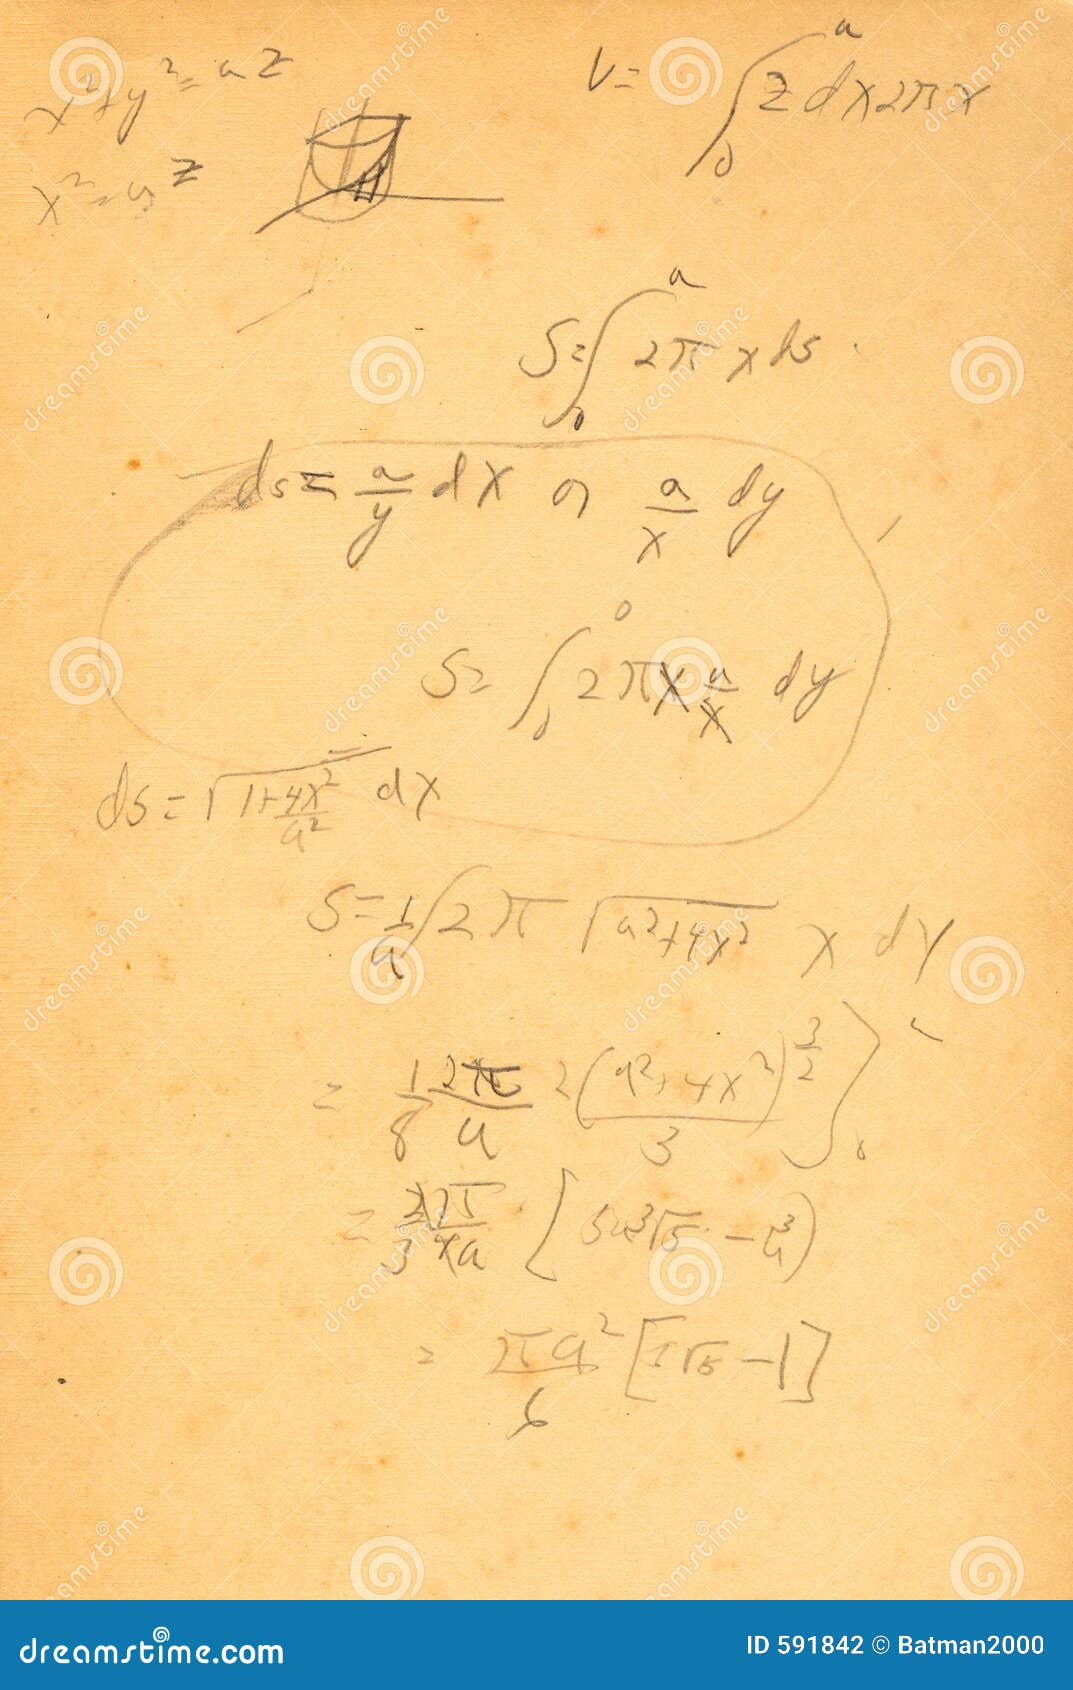 x² + y² = az
V = ∫₀ᵃ z dx 2π x
x² = az
S = ∫₀ᵃ 2π x ds
ds = a/y dx or a/x dy
S = ∫₀⁰ 2π x a/x dy
ds = √(1 + 4x²/a²) dx
S = 1/a ∫ 2π √(a² + 4x²) x dy
= 1/8 2π/a 2(a² + 4x²)^(3/2)/3 ]₀
= [5a³√5 - a³)
= πa²/6 [5√5 - 1]
dreamstime.com
ID 591842 © Batman2000